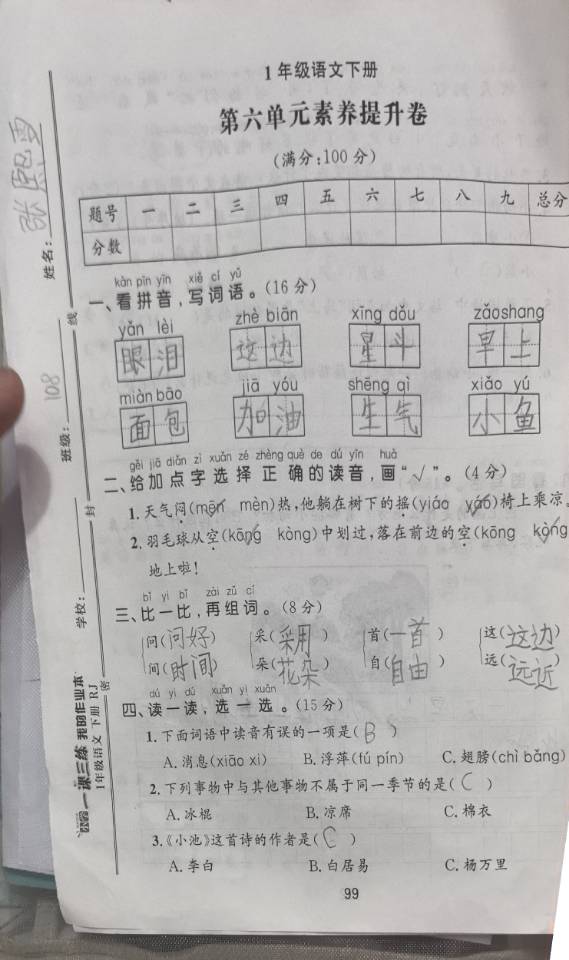 1年级语文下册
第六单元素养提升卷
(满分:100分)
题号 一 二 三 四 五 六 七 八 九 总分
分数
姓名: 张熙雪
班级: 108
学校:
线
封
密
一课三练 我的作业本
1年级语文 下册 RJ
kàn pīn yīn xiě cí yǔ
一、看拼音,写词语。(16分)
yǎn lèi zhè biān xīng dǒu zǎoshang
眼泪 这边 星斗 早上
miàn bāo jiā yóu shēng qì xiǎo yú
面包 加油 生气 小鱼
gěi jiā diǎn zì xuǎn zé zhèng què de dú yīn huà
二、给加点字选择正确的读音,画“√”。(4分)
1.天气闷(mēn mèn)热,他躺在树下的摇(yiáo yáo)椅上乘凉。
2.羽毛球从空(kōng kòng)中划过,落在前边的空(kōng kòng)
地上啦!
bǐ yi bǐ zài zǔ cí
三、比一比,再组词。(8分)
问(问好) 采(采用) 首(一首) 这(这边)
间(时间) 朵(花朵) 自(自由) 远(远近)
dú yi dú xuǎn yi xuǎn
四、读一读,选一选。(15分)
1.下面词语中读音有误的一项是(B)
A.消息(xiāo xi) B.浮萍(fú pín) C.翅膀(chì bǎng)
2.下列事物中与其他事物不属于同一季节的是(C)
A.冰棍 B.凉席 C.棉衣
3.《小池》这首诗的作者是(C)
A.李白 B.白居易 C.杨万里
99